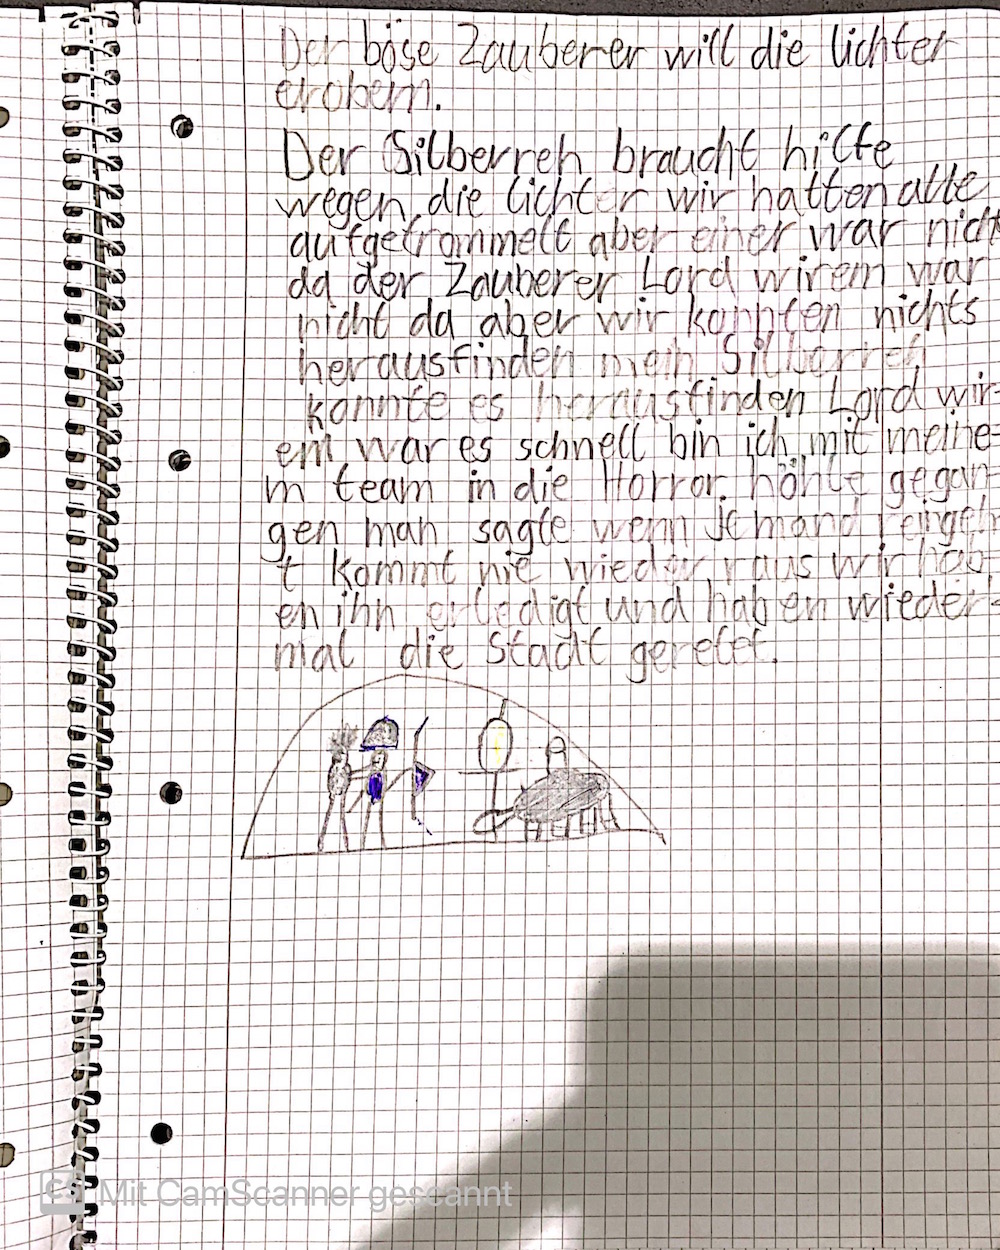 Der böse Zauberer will die lichter
erobern.
Der Silberreh braucht hilfe
wegen die lichter wir hatten alle
aufgetrommelt aber einer war nicht
da der Zauberer Lord wirem war
nicht da aber wir konnten nichts
herausfinden mein Silberreh
konnte es herausfinden Lord wir-
em war es schnell bin ich mit meine-
m team in die Horror. höhle gegan-
gen man sagte wenn jemand reingeh-
t kommt nie wieder raus wir hab-
en ihn erledigt und haben wieder-
mal die Stadt geretet.
CS Mit CamScanner gescannt